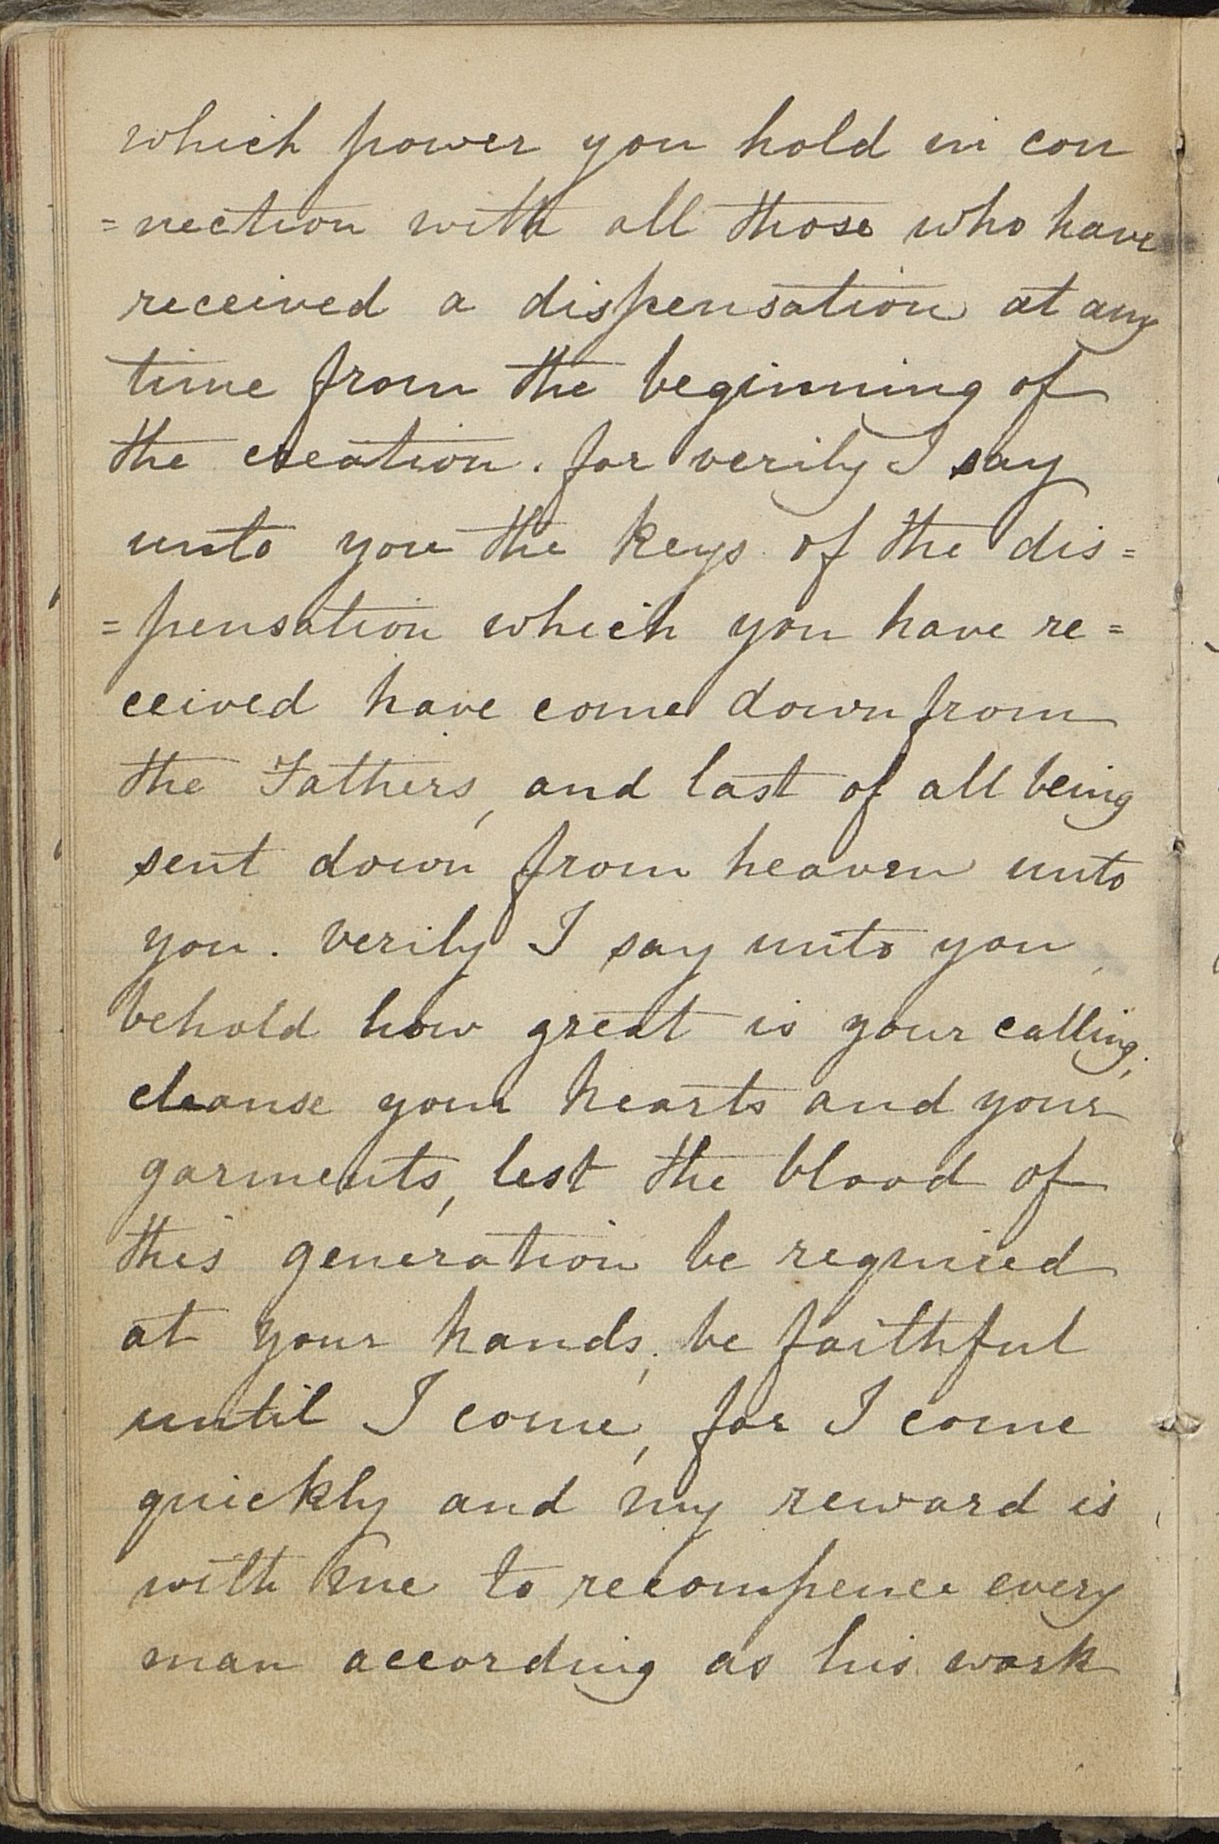 which power you hold in con
=nection with all those who have
received a dispensation at any
time from the beginning of
the creation. for verily I say
unto you the keys of the dis=
=pensation which you have re=
ceived have come down from
the Fathers, and last of all being
sent down from heaven unto
you. Verily I say unto you,
behold how great is your calling;
cleanse your hearts and your
garments, lest the blood of
this generation be required
at your hands; be faithful
until I come, for I come
quickly and my reward is
with me to recompence every
man according as his work